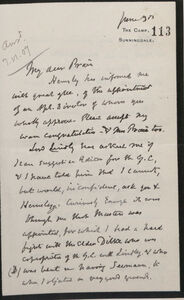 June 30
THE CAMP,
SUNNINGDALE.
113
My dear Prain
Hemsley has informed me
with great glee, of the appointment
of an Asst. Director of whom you
wholly approve. Please accept my
warm congratulations & Mrs Prain too.
Lord Lindley has asked me if
I can suggest an Editor for the G.C.
& I have told him that I cannot,
but would, in confidence, ask you &
Hemsley. Curiously enough it was
through me that Masters was
appointed, for which I had a hard
fight with the elder Dilke who was
co-proprietor of the G.C. with Lindley & who
was bent on having Seemann, to
whom I objected on very good grounds.